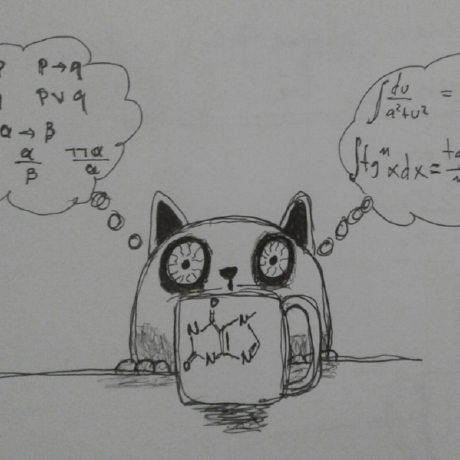 p → q
p ∨ q
α → β
α
β
¬¬α
α
∫ du/(a²+u²) =
∫ tgⁿ x dx =
O
N
N
O
N
N